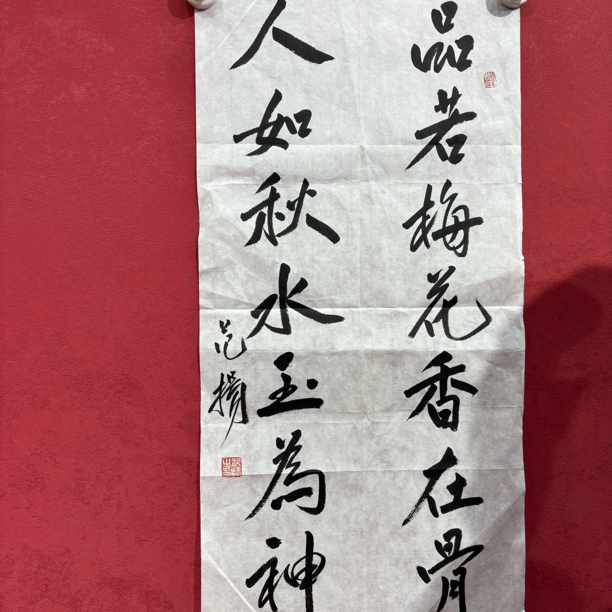 品若梅花香在骨
人如秋水玉為神
范揚